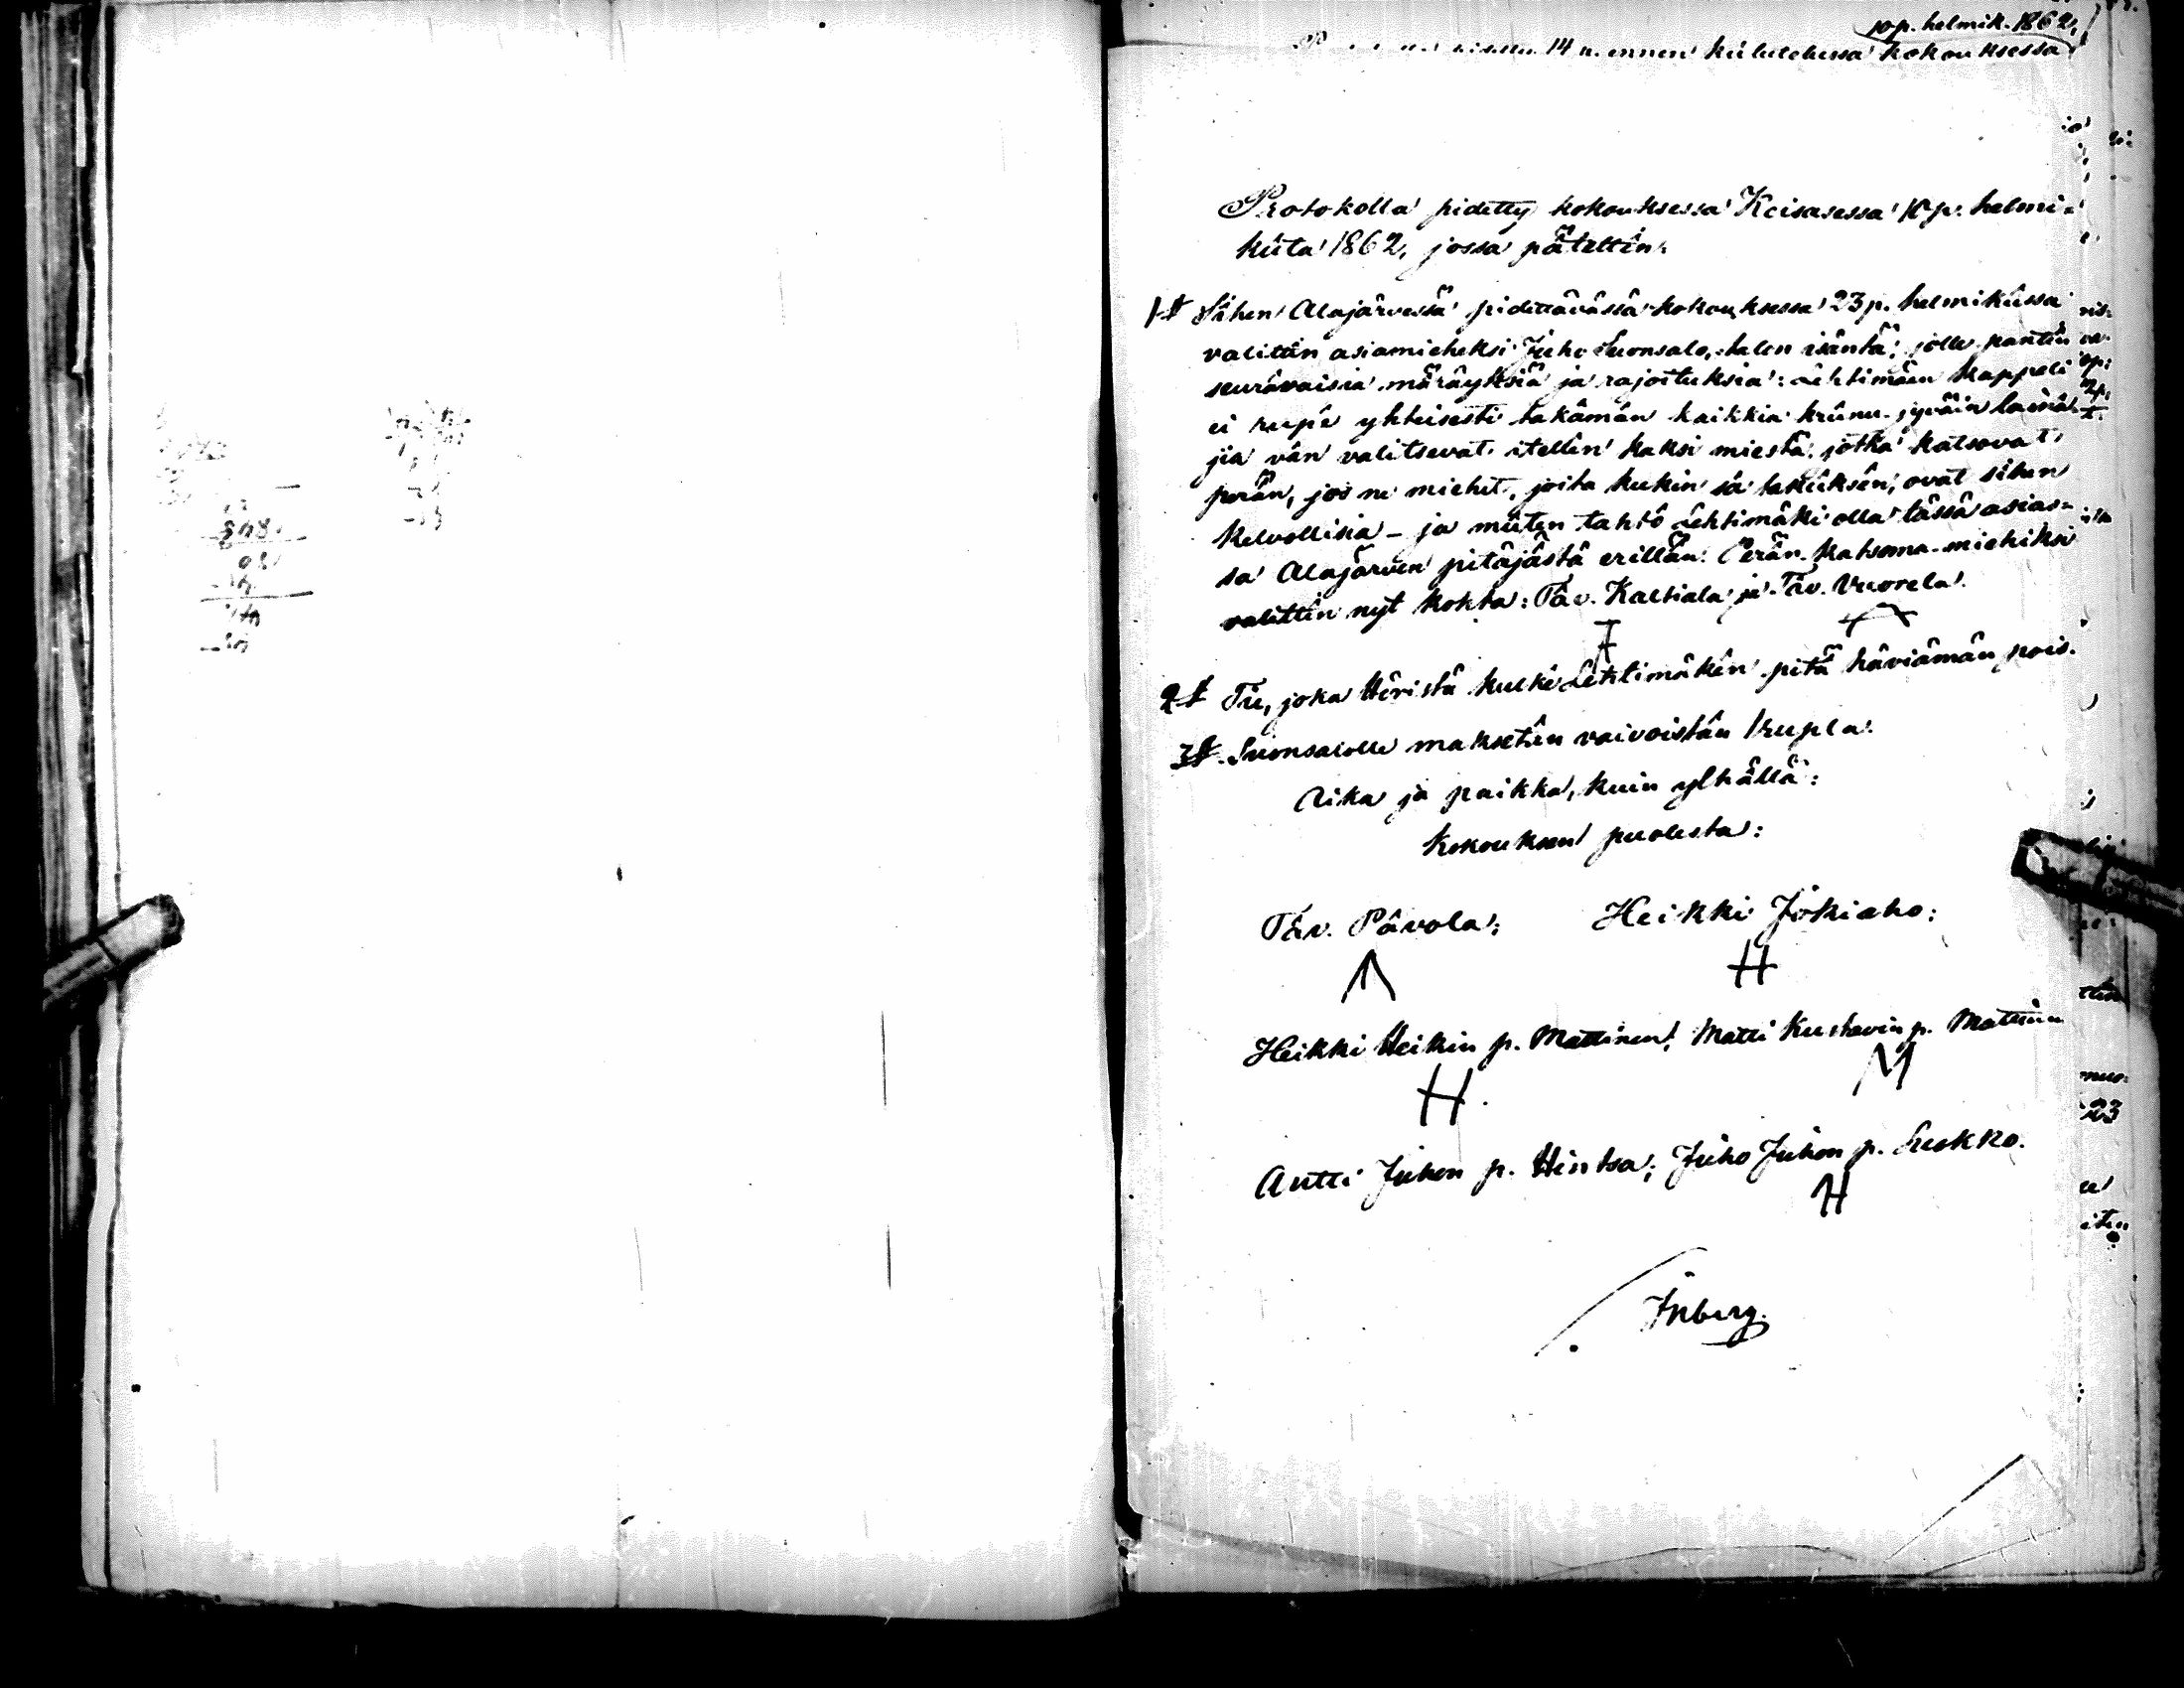 10 p. helmik. 1862,
14 p. ennen külutetussa kokouksessa
Protokolla pidetty kokouksessa Keisasessa 10 p. helmi-
küta 1862, jossa pâtettin:
1:ξ Sihen Alajärvessä pidettävässä kokouksessa 23 p. helmiküssa
valittîn asiamieheksi Juho Suonsalo, talon isäntä; jolle pantîn
seurâvaisia mâräyksiä ja rajoituksia: Lehtimäen kappeli
ei rupê yhteisesti takâmân kaikkia krûnu-jyväin lainâ-
jia vân valitsevat itellên kaksi miestä, jotka katsovat
perân, jos ne miehet, joita kukin sâ takûksên, ovat sihen
kelvollisia – ja mûten tahtô Lehtimäki olla tässä asias-
sa Alajärven pitäjästä erillân. Perân-katsoma-miehiksi
valittîn nyt kohta: Tâv. Kaltiala ja Tâv. Vuorela.
2:ξ Tie, joka Hôristä kulkê Lehtimäkên pitâ häviämân pois.
3:ξ Suonsalolle maksetân vaivoistân 1 rupla.
Aika ja paikka, kuin ylhâllä:
Kokouksen puolesta:
Tâv. Pâvola; Heikki Jokiaho;
H
Heikki Heikin p. Mattinen; Matti Kustavin p. Mattinen
H M
Antti Juhon p. Hintsa; Juho Juhon p. Sukko.
H
Inberg.